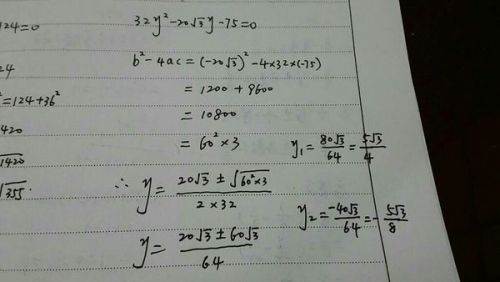 124=0
24
²=124+36²
1420
√1420
√355.
32y²-20√3y-75=0
b²-4ac=(-20√3)²-4×32×(-75)
=1200+9600
=10800
=60²×3
∴ y=(20√3±√(60²×3))/(2×32)
y=(20√3±60√3)/64
y₁=80√3/64=5√3/4
y₂=-40√3/64=-5√3/8